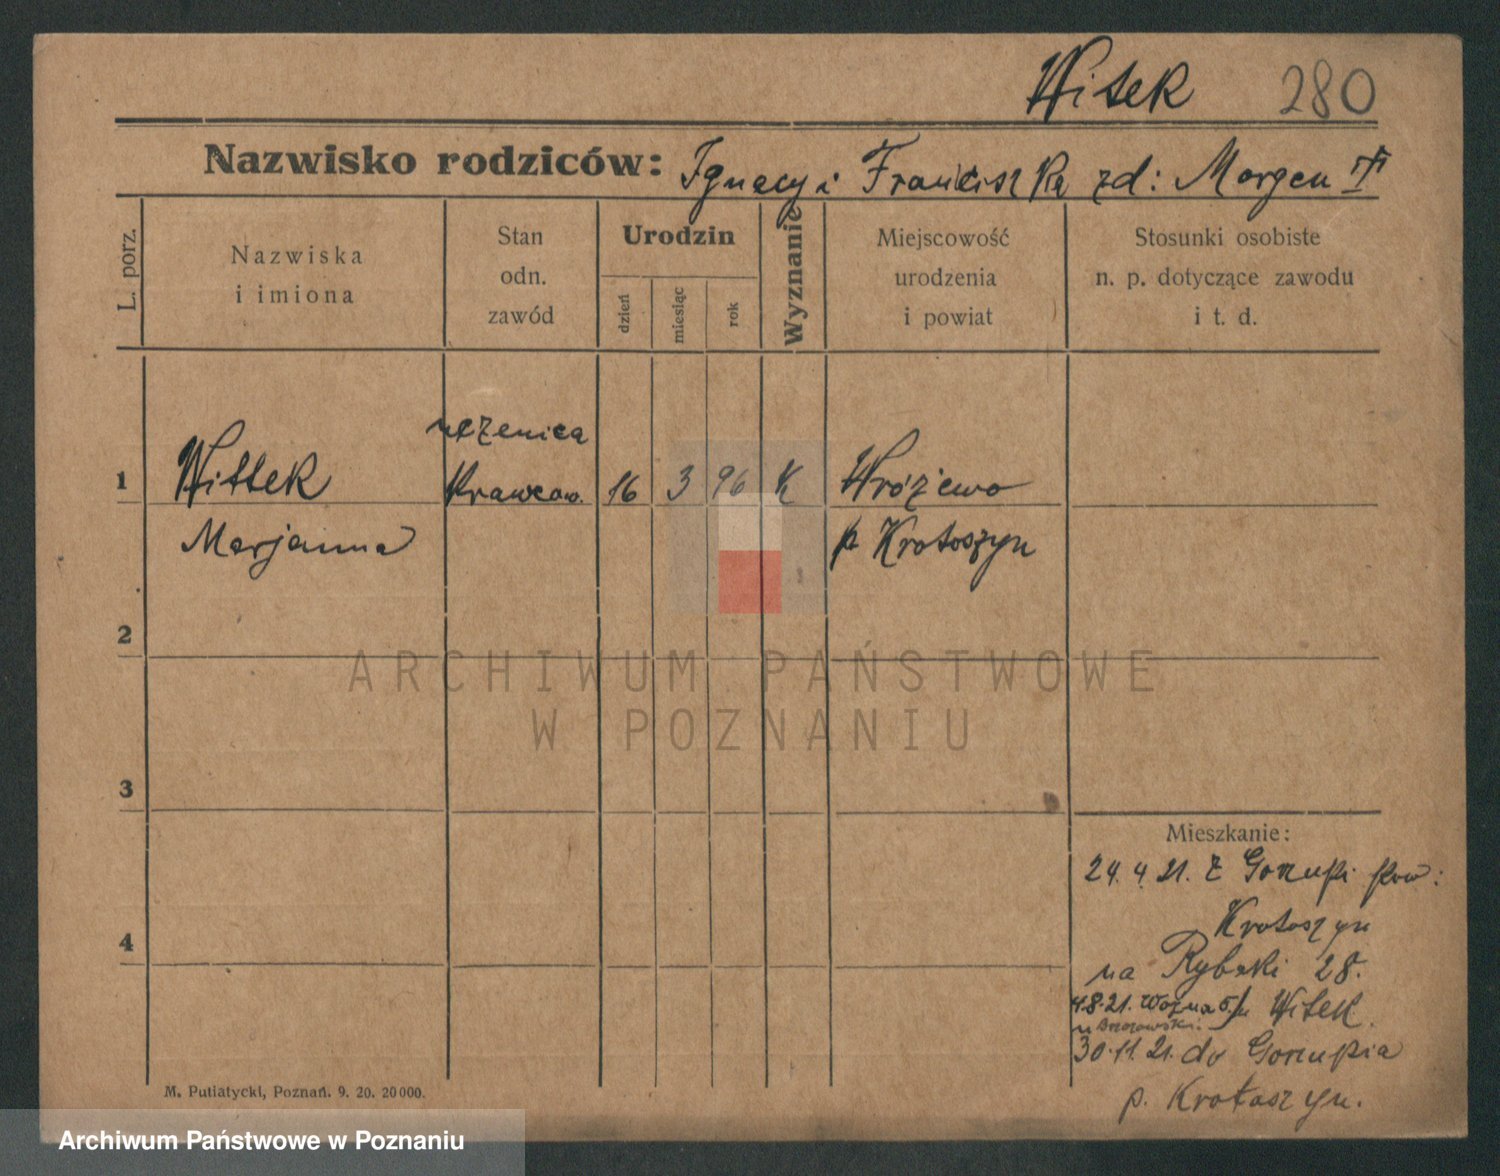 Witek 280
Nazwisko rodziców: Ignacy i Franciszka zd: Morgen †
L. porz.
Nazwiska
i imiona
Stan
odn.
zawód
Urodzin
dzień
miesiąc
rok
Wyznanie
Miejscowość
urodzenia
i powiat
Stosunki osobiste
n. p. dotyczące zawodu
i t. d.
uczenica
1 Wittek krawcow. 16 3 96 K Wróżewo
Marjanna p Krotoszyn
2
ARCHIWUM PAŃSTWOWE
W POZNANIU
3
Mieszkanie:
24.4.21. z Gorzupi pow:
Krotoszyn
4
na Rybaki 28.
4.8.21. Woźna 5/ u Witek.
u
30.11.21. do Gorzupia
p. Krotoszyn.
M. Putiatycki, Poznań. 9. 20. 20000.
Archiwum Państwowe w Poznaniu